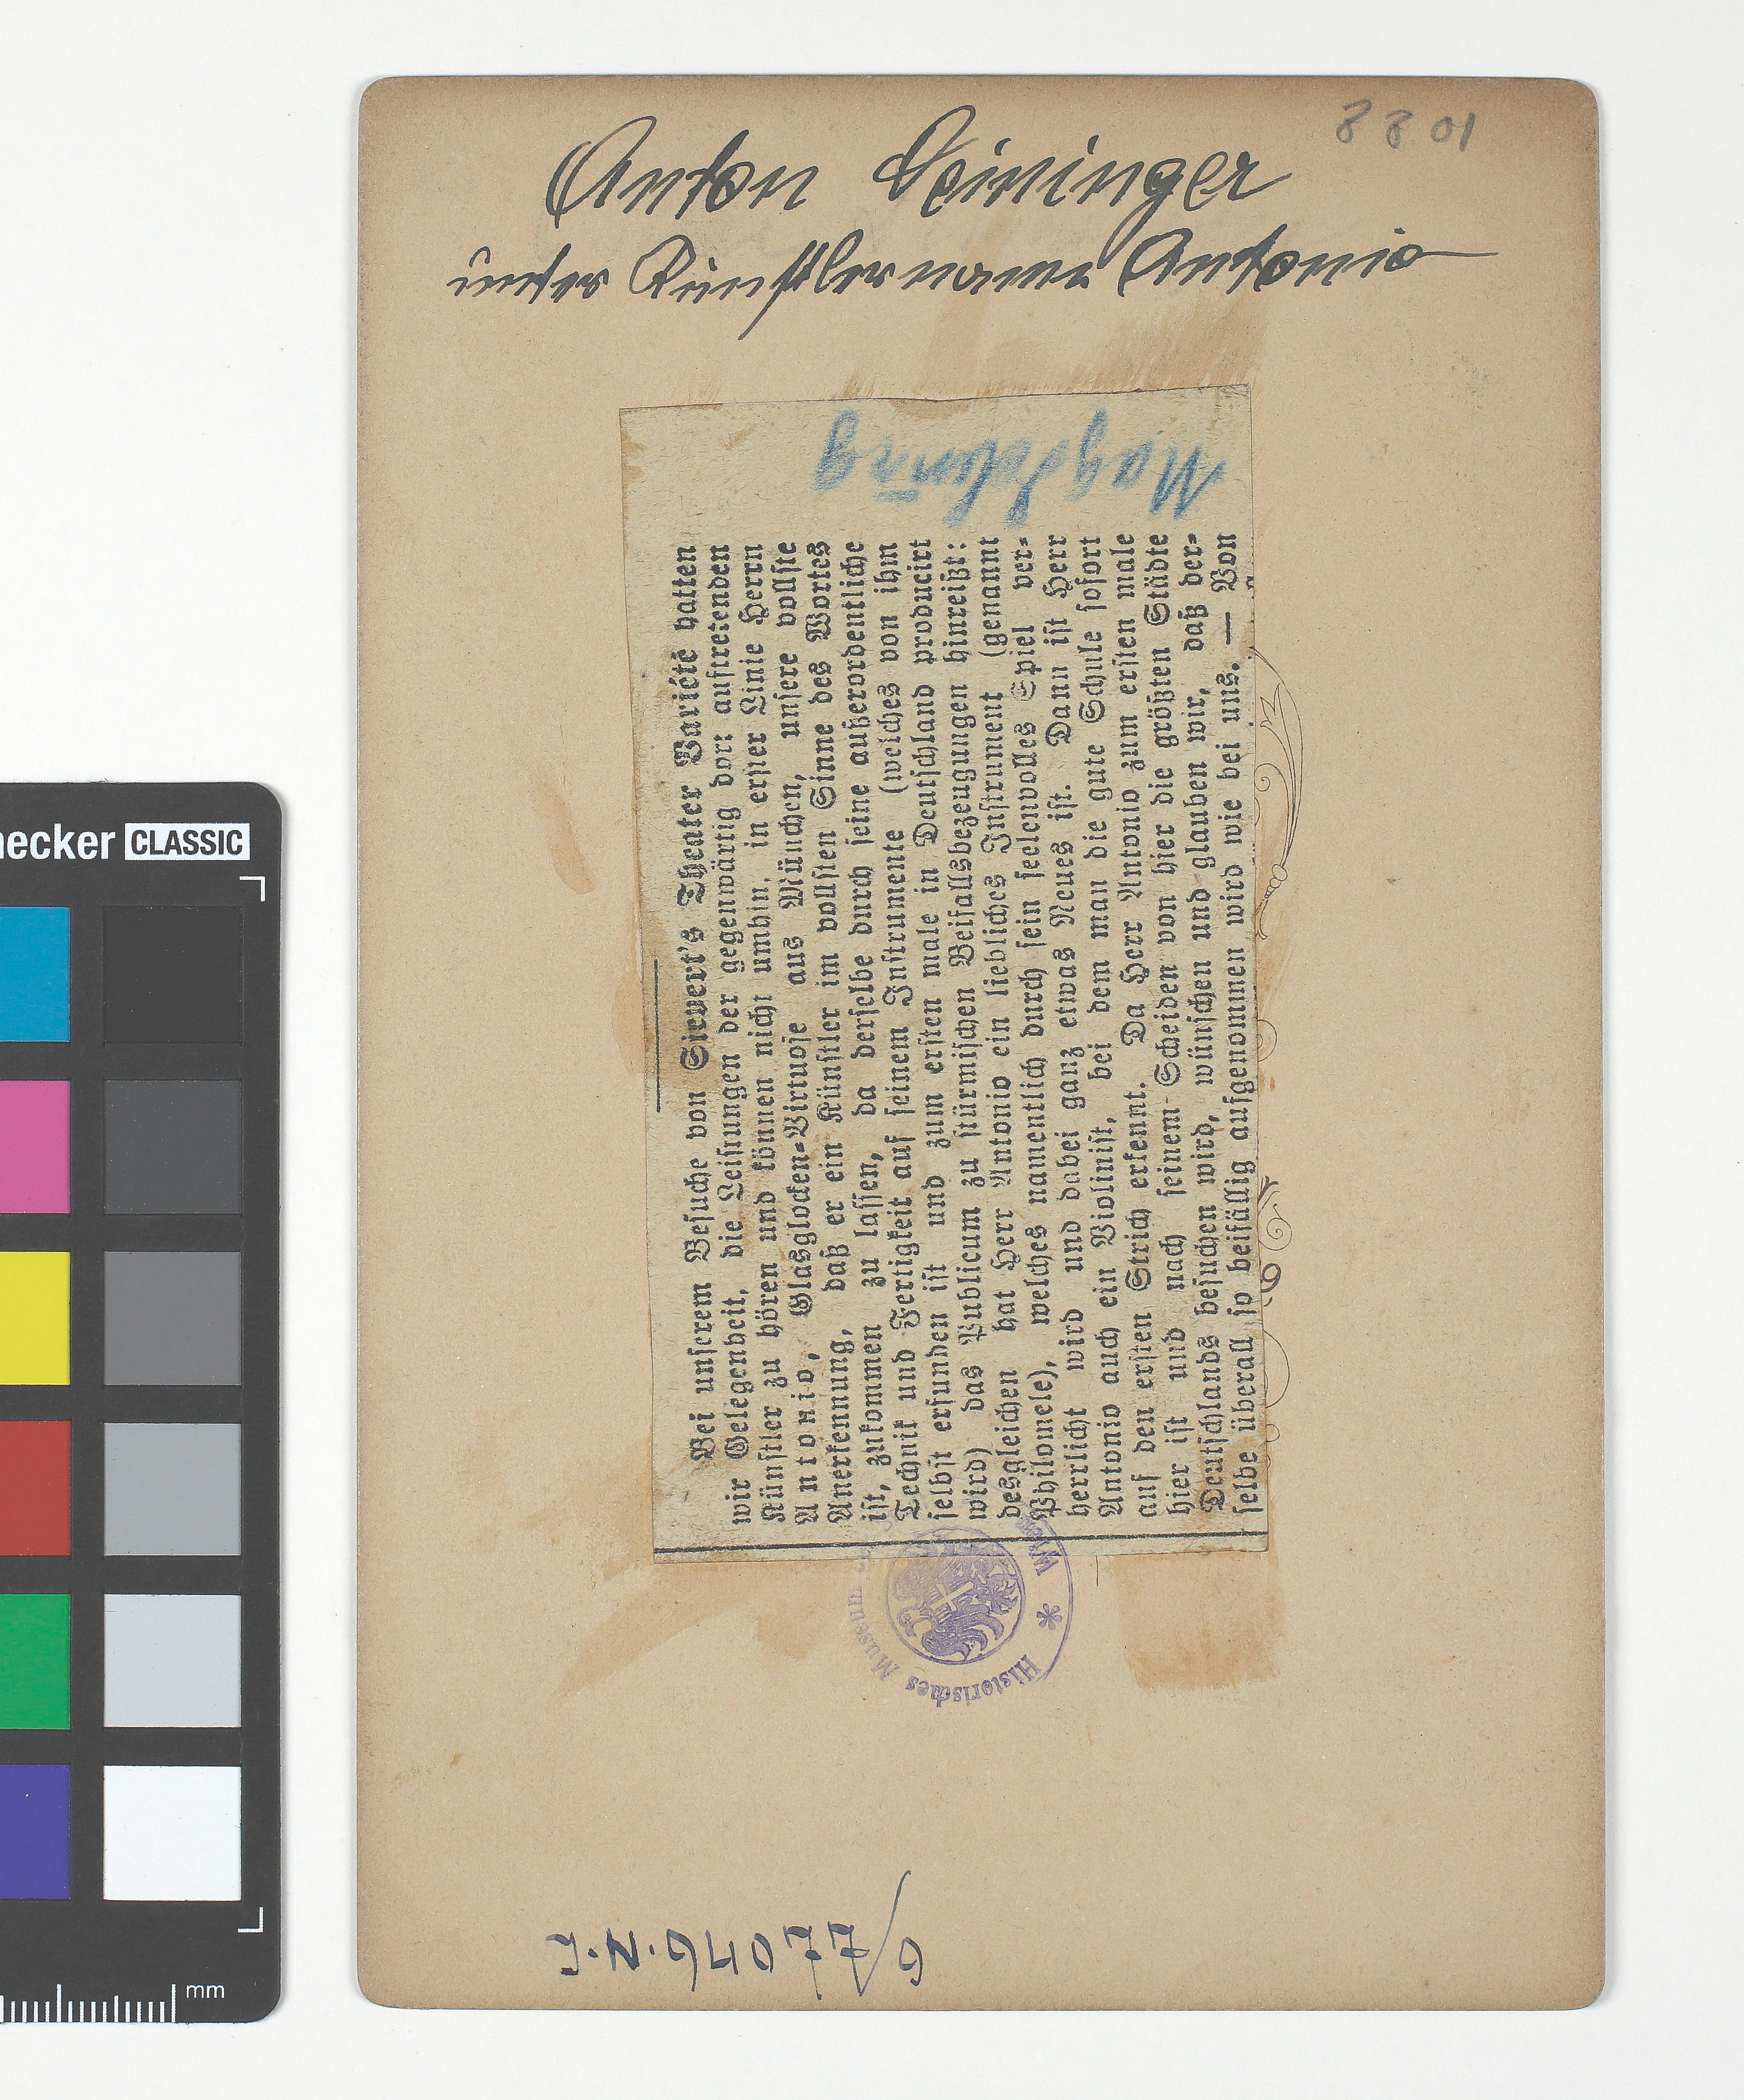 8801
Anton Leininger
unter Künstlername Antonio
Magdeburg
Bei unserem Besuche von Sievert's Theater Variété hatten
wir Gelegenheit, die Leistungen der gegenwärtig dort auftretenden
Künstler zu hören und können nicht umhin, in erster Linie Herrn
Antonio, Glasglocken-Virtuose aus München, unsere vollste
Anerkennung, daß er ein Künstler im vollsten Sinne des Wortes
ist, zukommen zu lassen, da derselbe durch seine außerordentliche
Technik und Fertigkeit auf seinem Instrumente (welches von ihm
selbst erfunden ist und zum ersten male in Deutschland producirt
wird) das Publicum zu stürmischen Beifallsbezeugungen hinreißt:
desgleichen hat Herr Antonio ein liebliches Instrument (genannt
Philomele), welches namentlich durch sein seelenvolles Spiel ver-
herrlicht wird und dabei ganz etwas Neues ist. Dann ist Herr
Antonio auch ein Violinist, bei dem man die gute Schule sofort
auf den ersten Strich erkennt. Da Herr Antonio zum ersten male
hier ist und nach seinem Scheiden von hier die größten Städte
Deutschlands besuchen wird, wünschen und glauben wir, daß der-
selbe überall so beifällig aufgenommen wird wie bei uns. — Von
Historisches Museum Wien *
I.N.
necker CLASSIC
mm